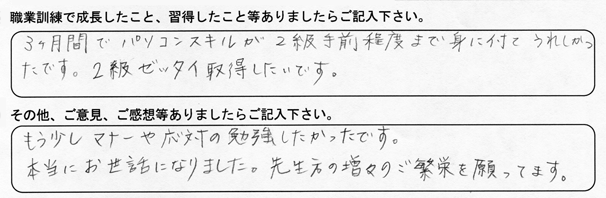 職業訓練で成長したこと、習得したこと等ありましたらご記入下さい。
3ヶ月間でパソコンスキルが2級手前程度まで身に付てうれしかっ
たです。2級ゼッタイ取得したいです。
その他、ご意見、ご感想等ありましたらご記入下さい。
もう少しマナーや応対の勉強したかったです。
本当にお世話になりました。先生方の増々のご繁栄を願ってます。